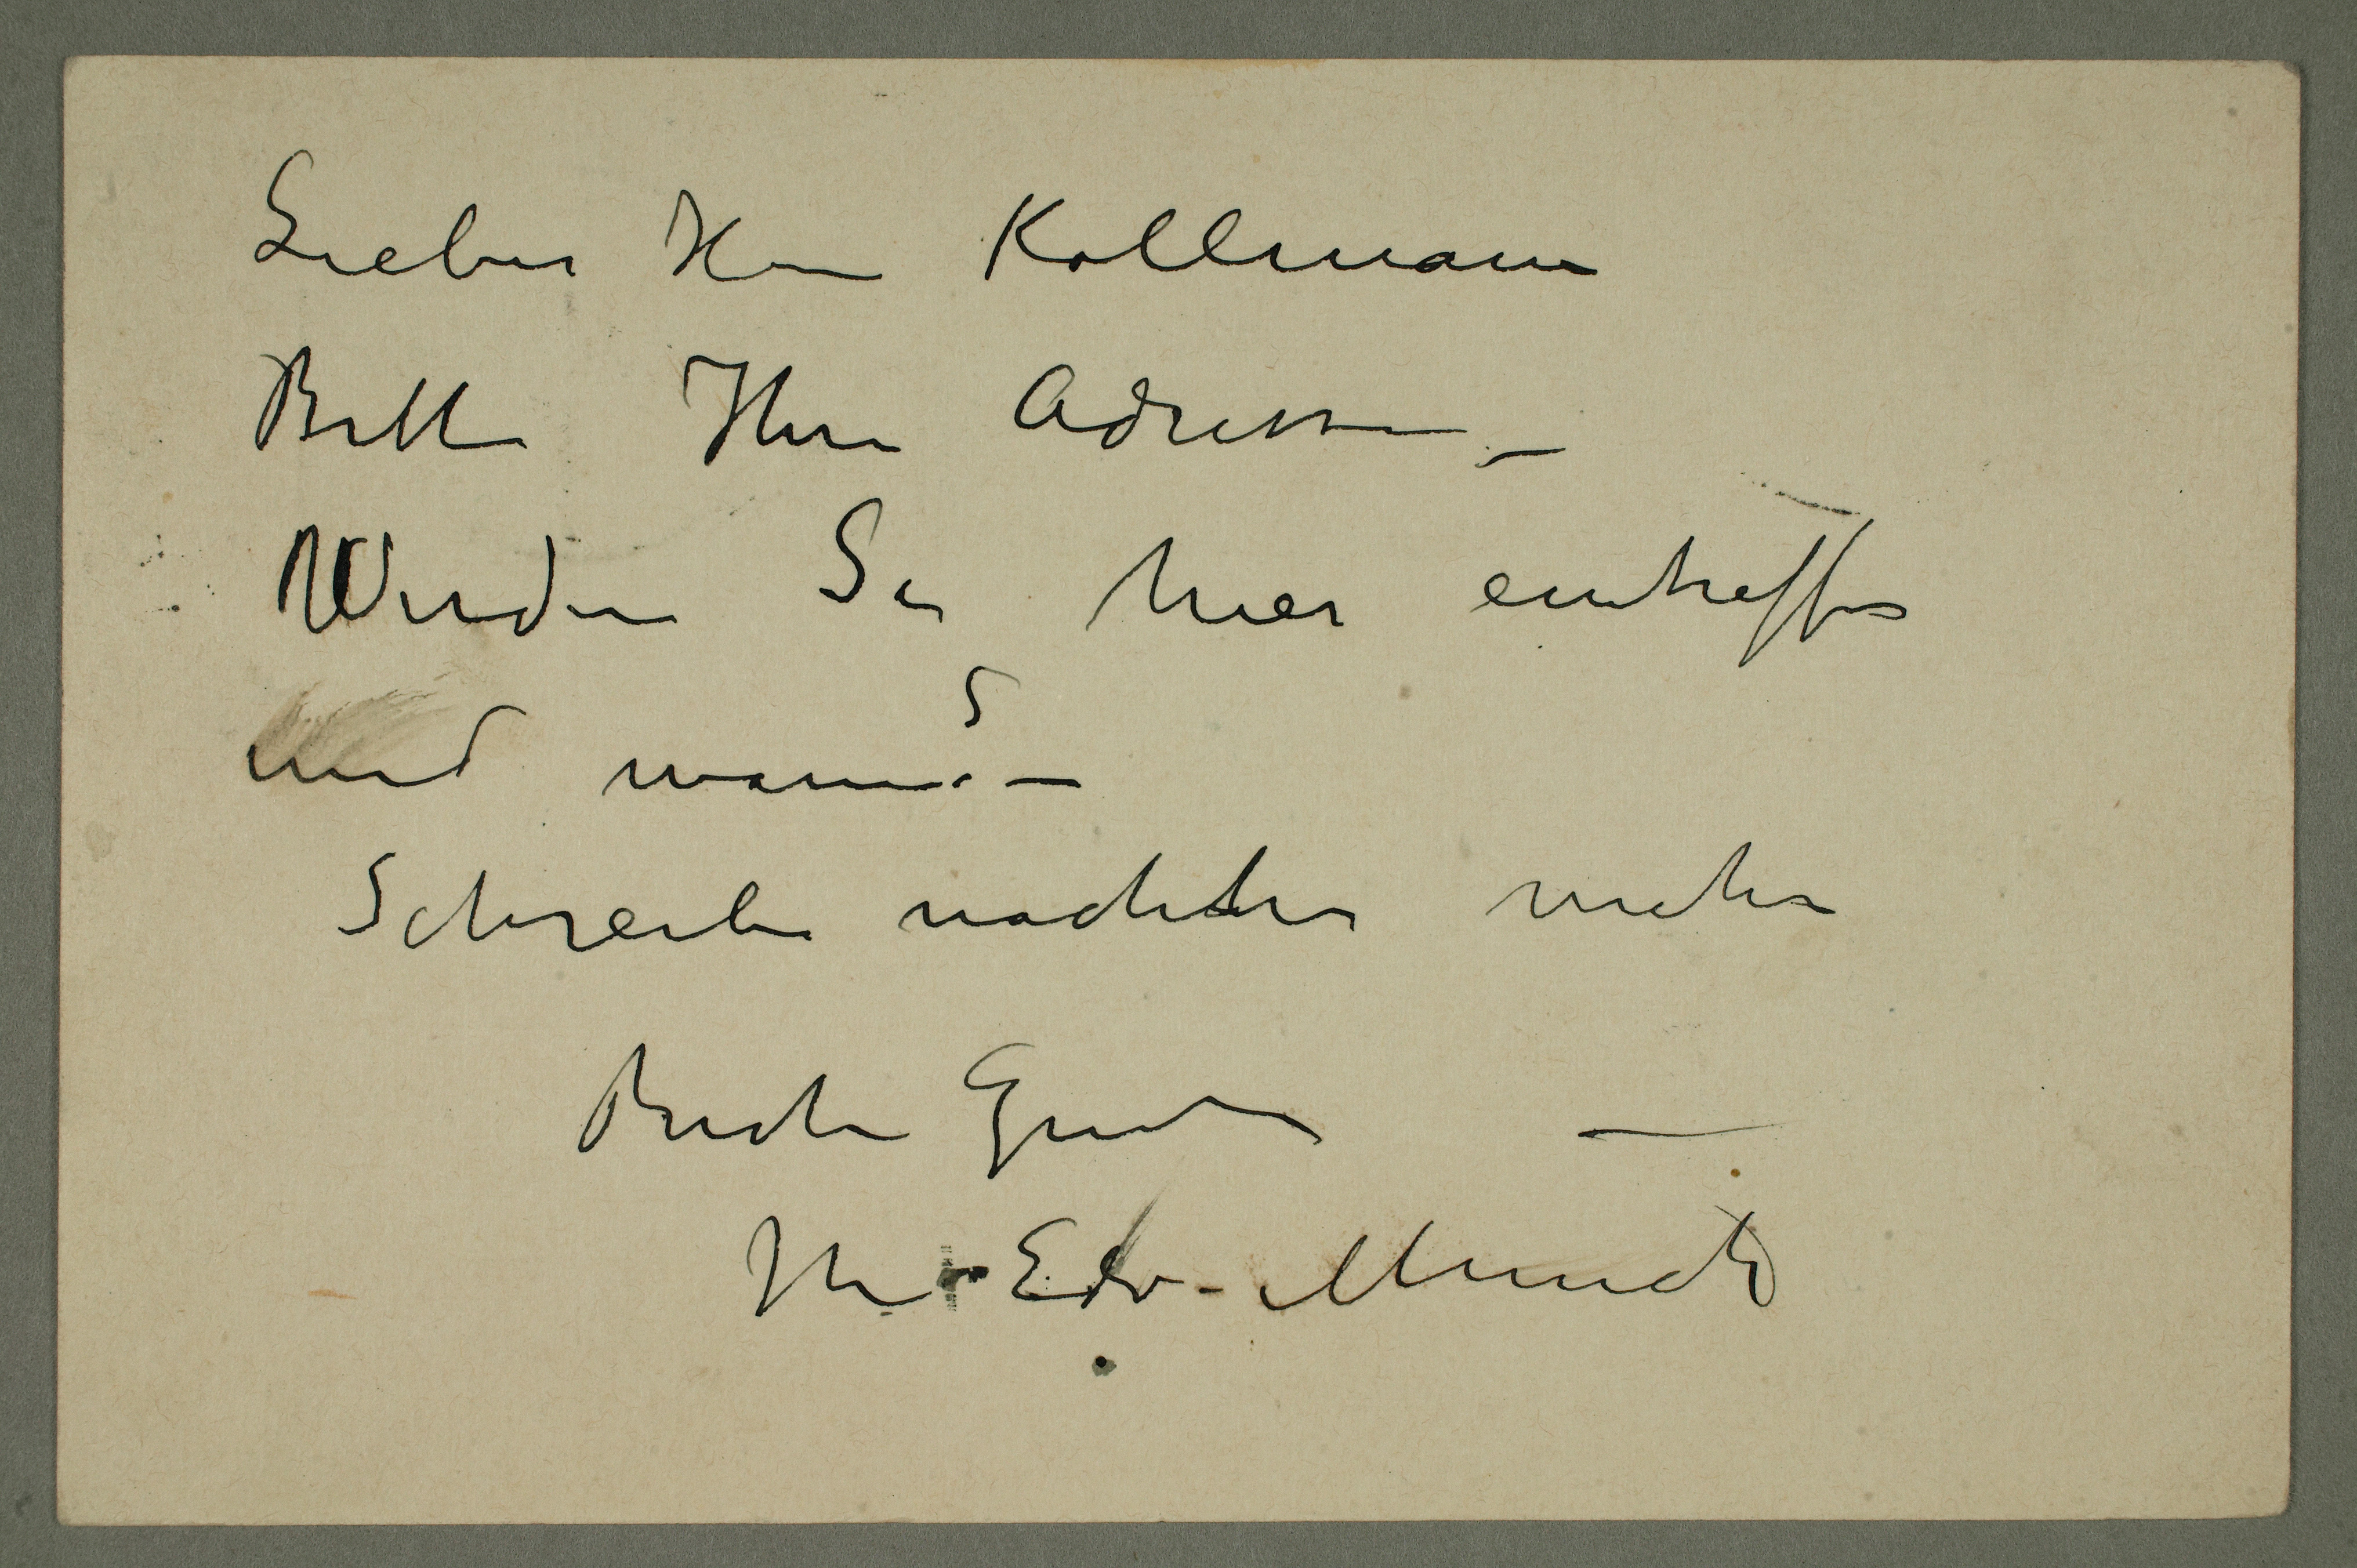 Lieber Herr Kollmann
Bitte Ihre Adresse –
Werden Sie hier eintreffen
und wann? –
Schreibe nachher mehr
Beste Grüsse –
Ihr Edv. Munch